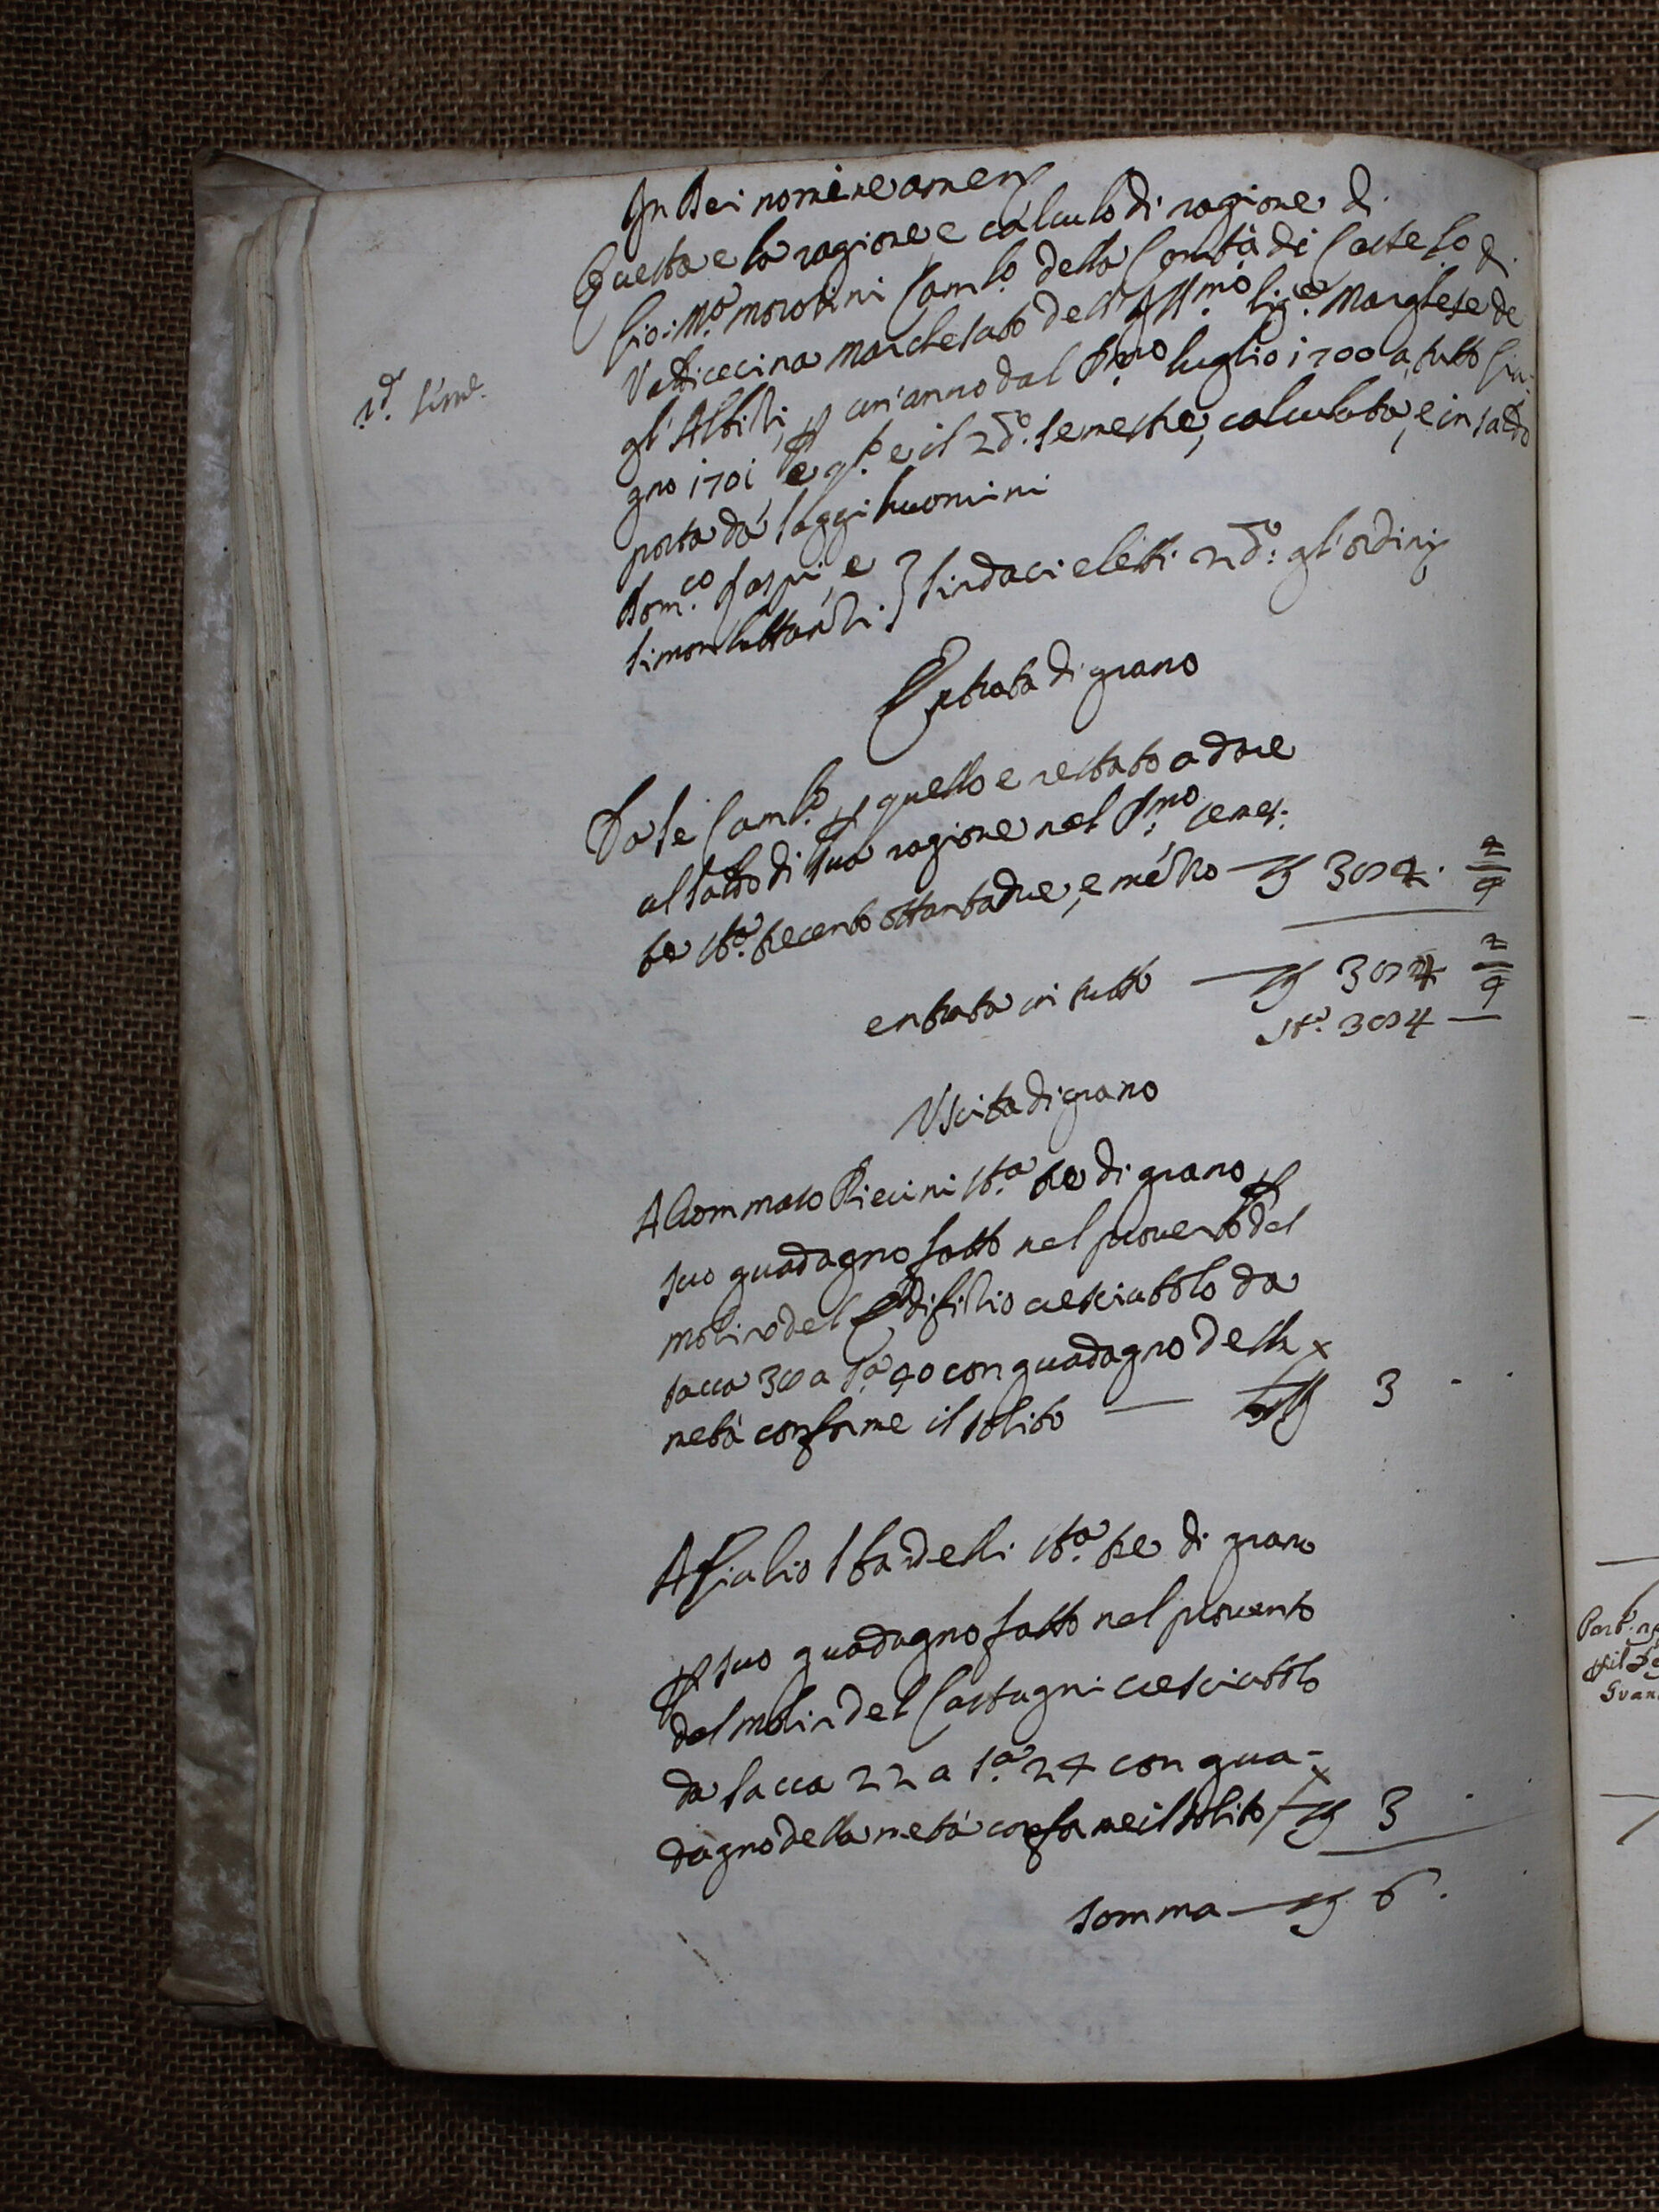 In Dei nomine amen
Questa e la ragione e calculo di ragione di
Gio: Ma. morotini Camlo. della Comtà di Castello di
Valdicecina marchesato dell Illmo. Sigre. Marchese de
gl'Albizi, p un'anno dal Pmo luglio 1700 a tutto Giu-
gno 1701 e qto. e il 2do. semestre, calculata, e in saldo
2d. Seme.
posta da saggi huomini
Domco. e
Simon } sindaci eletti 2do: gl'ordini
Entrata di grano
Da se Camlo. p quello e restato a dare
al saldo di sua ragione nel Pmo semes:
te sta. trecento ottantadue, e mezzo 382
entrata in tutto 382
sta. 384 —
Uscita di grano
A Tommaso Riccini sta. tre di grano p
suo guadagno fatto nel provento del
molino del Edifizio cresciutolo da
sacca 38 a sa. 40 con guadagno della
metà conforme il solito — 3
A Giulio Sbardelli sta. tre di grano
p suo guadagno fatto nel provento
del molin del Castagni cresciutolo
da sacca 22 a sa. 24 con gua-
dagno della metà conforme il solito 3
somma — 6.